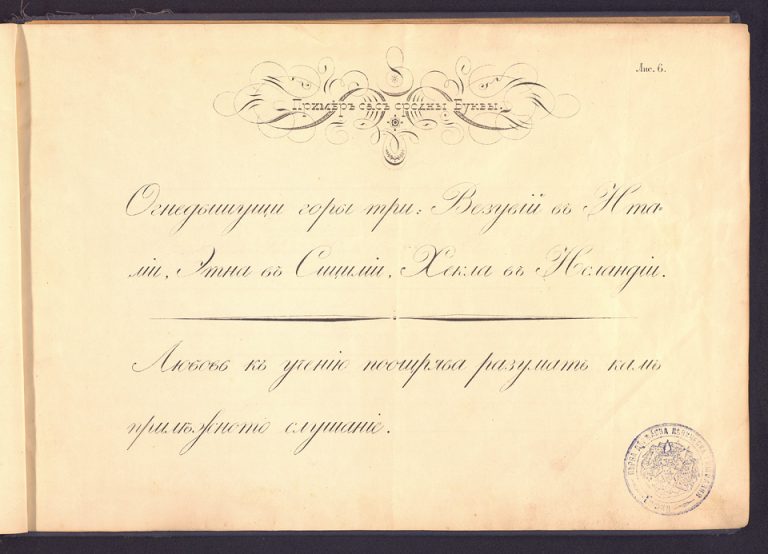 Лис. 6.
Примѣръ съсъ срѣдны Буквы.
Огнедышущи горы три: Везувій въ Ита-
ліи, Этна въ Сициліи, Хекла въ Исландіи.
Любовь къ учению поощрява разумътъ камъ
прилѣжното слушаніе.